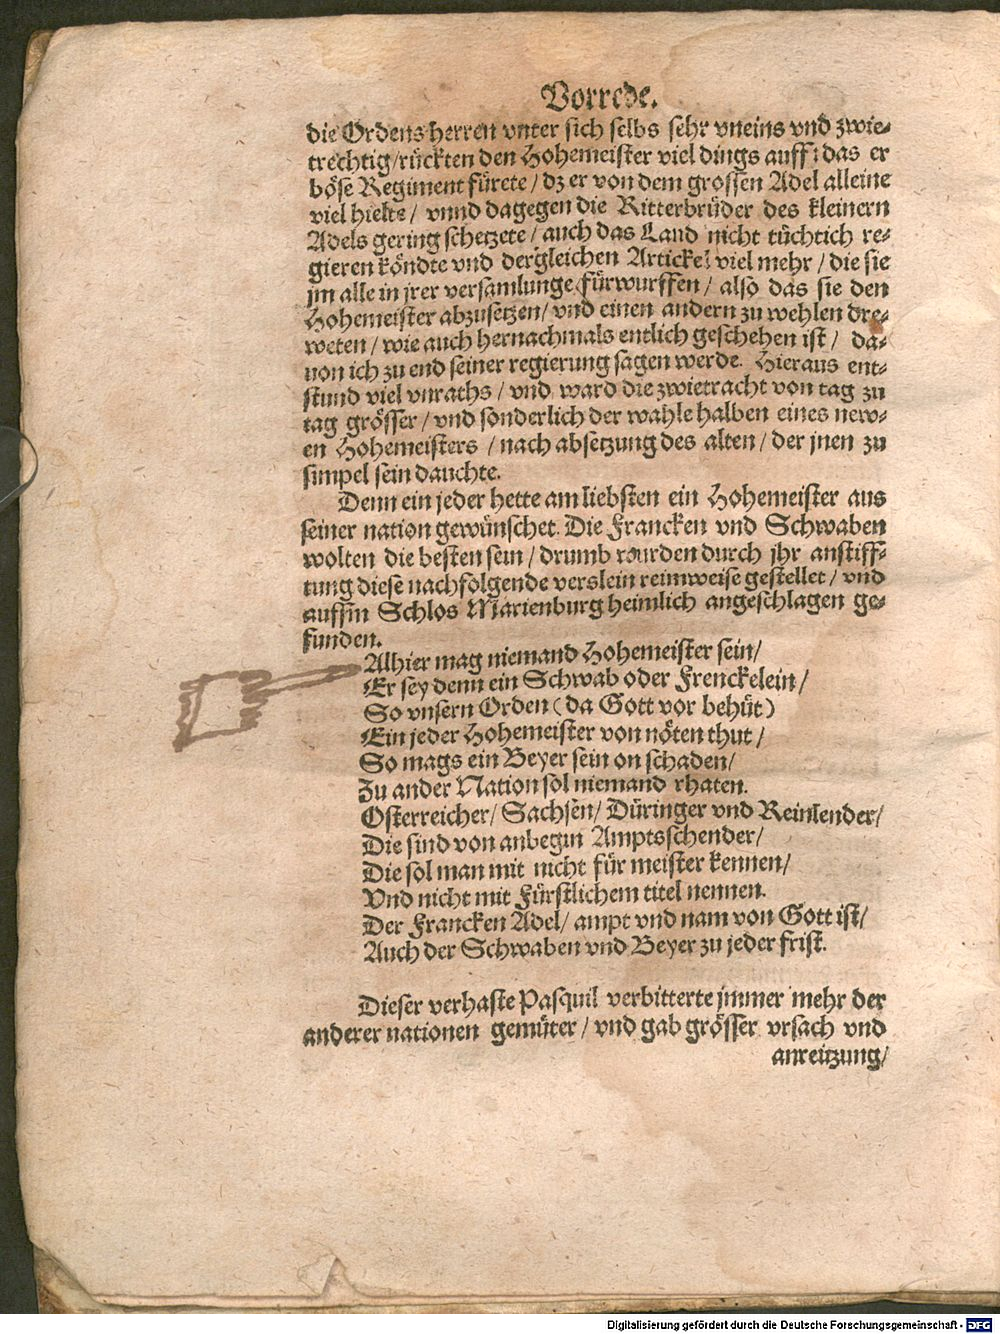 Vorrede.
die Ordensherren vnter sich selbs sehr vneins vnd zwie-
trechtig/rückten den Hohemeister viel dings auff: das er
böse Regiment fürete/ dz er von dem grossen Adel alleine
viel hielte/ vnnd dagegen die Ritterbrüder des kleinern
Adels gering schetzete/ auch das Land nicht tüchtich re-
gieren köndte vnd dergleichen Artickel viel mehr/ die sie
jm alle in jrer versamlunge fürwurffen/ also das sie den
Hohemeister abzusetzen/ vnd einen andern zu wehlen dre-
weten/ wie auch hernachmals entlich geschehen ist/ da-
uon ich zu end seiner regierung sagen werde. Hieraus ent-
stund viel vnraths/ vnd ward die zwietracht von tag zu
tag grösser/ vnd sonderlich der wahle halben eines new-
en Hohemeisters /nach absetzung des alten/ der jnen zu
simpel sein dauchte.
Denn ein jeder hette am liebsten ein Hohemeister aus
seiner nation gewünschet. Die Francken vnd Schwaben
wolten die besten sein/ drumb wurden durch jhr anstiff-
tung diese nachfolgende verslein reimweise gestellet/ vnd
auffm Schlos Marienburg heimlich angeschlagen ge-
funden.
Alhier mag niemand Hohemeister sein/
Er sey denn ein Schwab oder Frenckelein/
So vnsern Orden (da Gott vor behüt)
Ein jeder Hohemeister von nöten thut/
So mags ein Beyer sein on schaden/
Zu ander Nation sol niemand rhaten.
Osterreicher/ Sachsen/ Düringer vnd Reinlender/
Die sind von anbegin Amptsschender/
Die sol man mit nicht für meister kennen/
Vnd nicht mit Fürstlichem titel nennen.
Der Francken Adel/ ampt vnd nam von Gott ist/
Auch der Schwaben vnd Beyer zu jeder frist.
Dieser verhaste Pasquil verbitterte jmmer mehr der
anderer nationen gemüter/ vnd gab grösser vrsach vnd
anreitzung/
Digitalisierung gefördert durch die Deutsche Forschungsgemeinschaft - DFG